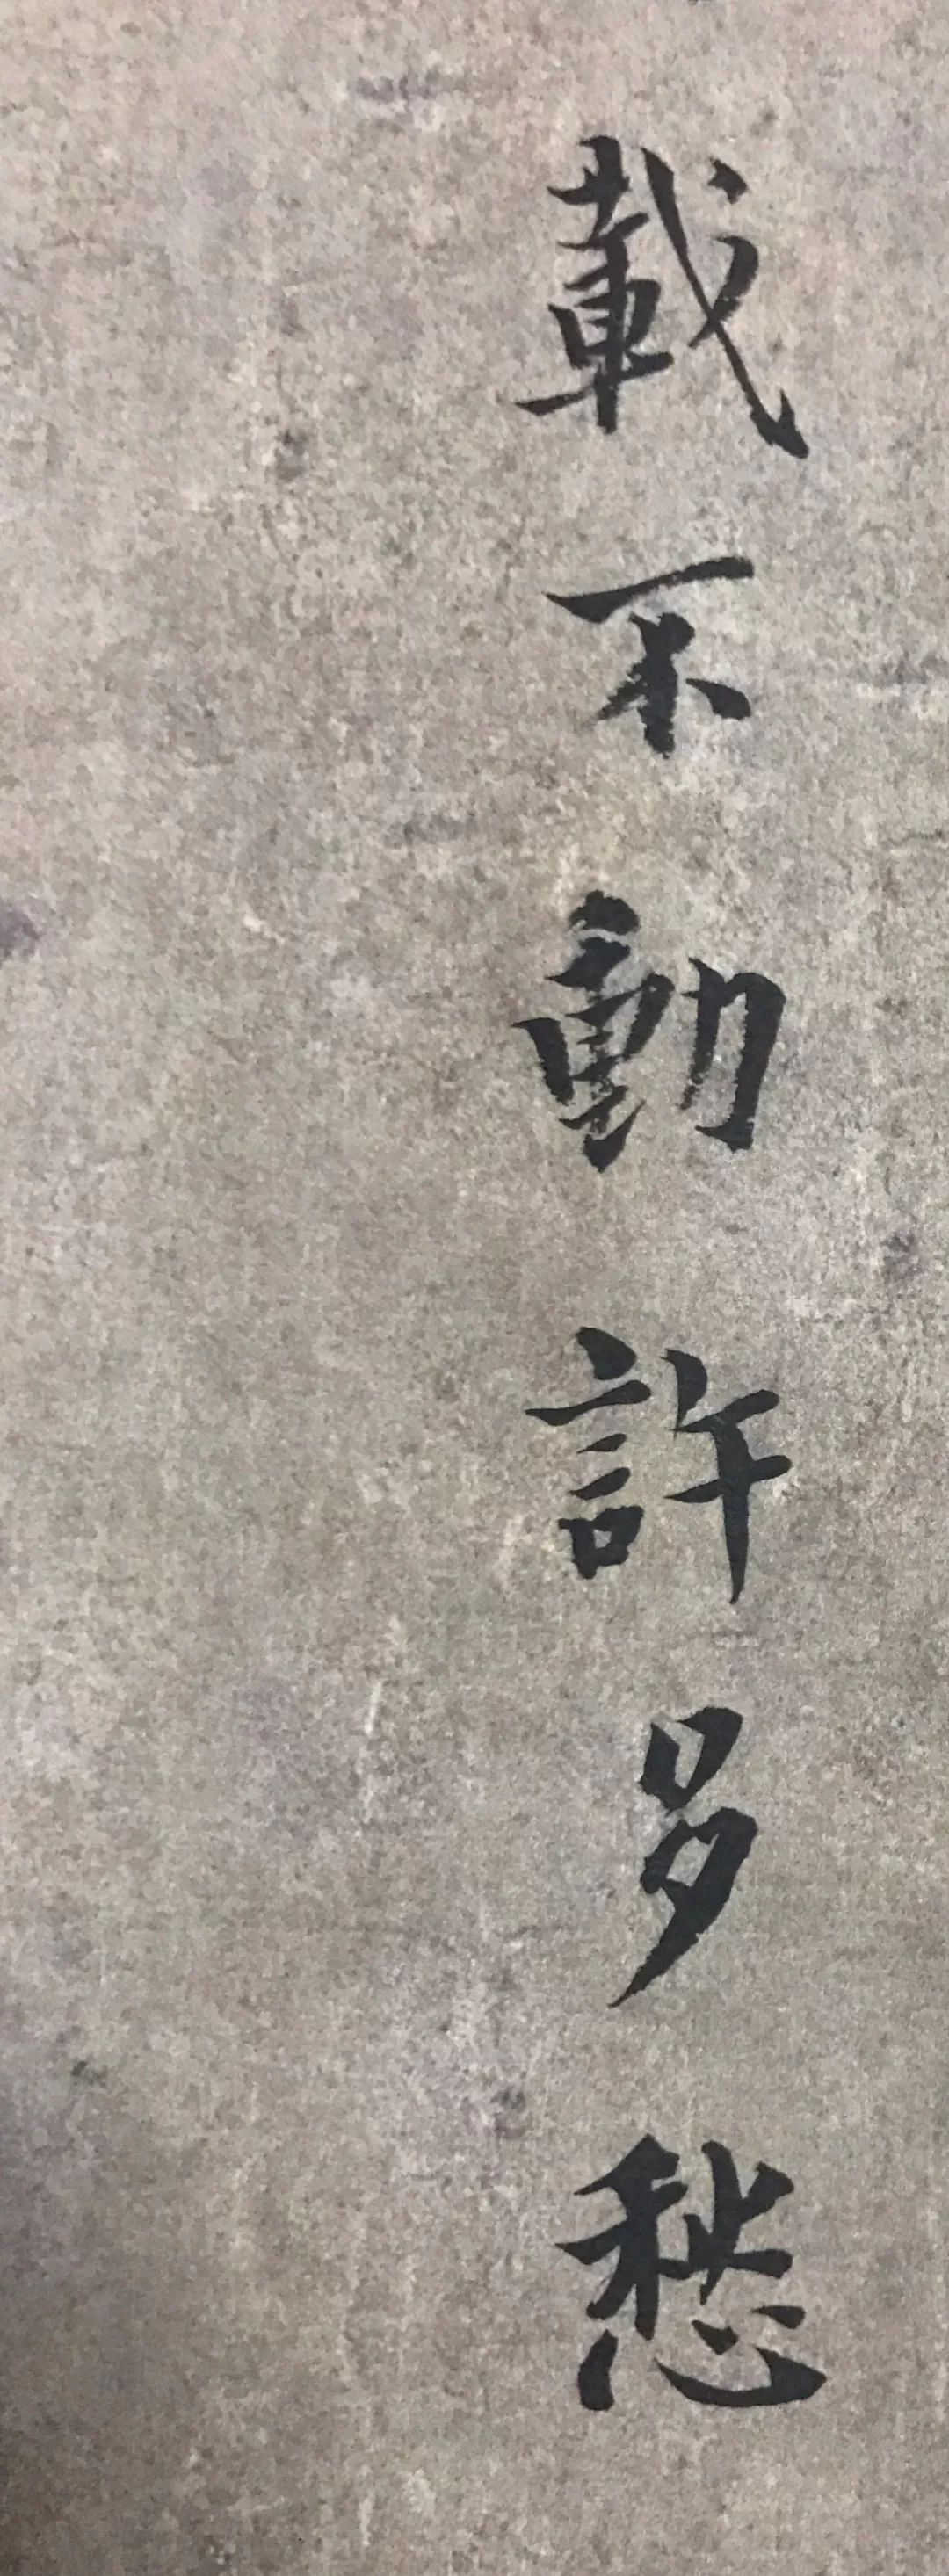 載不動許多愁